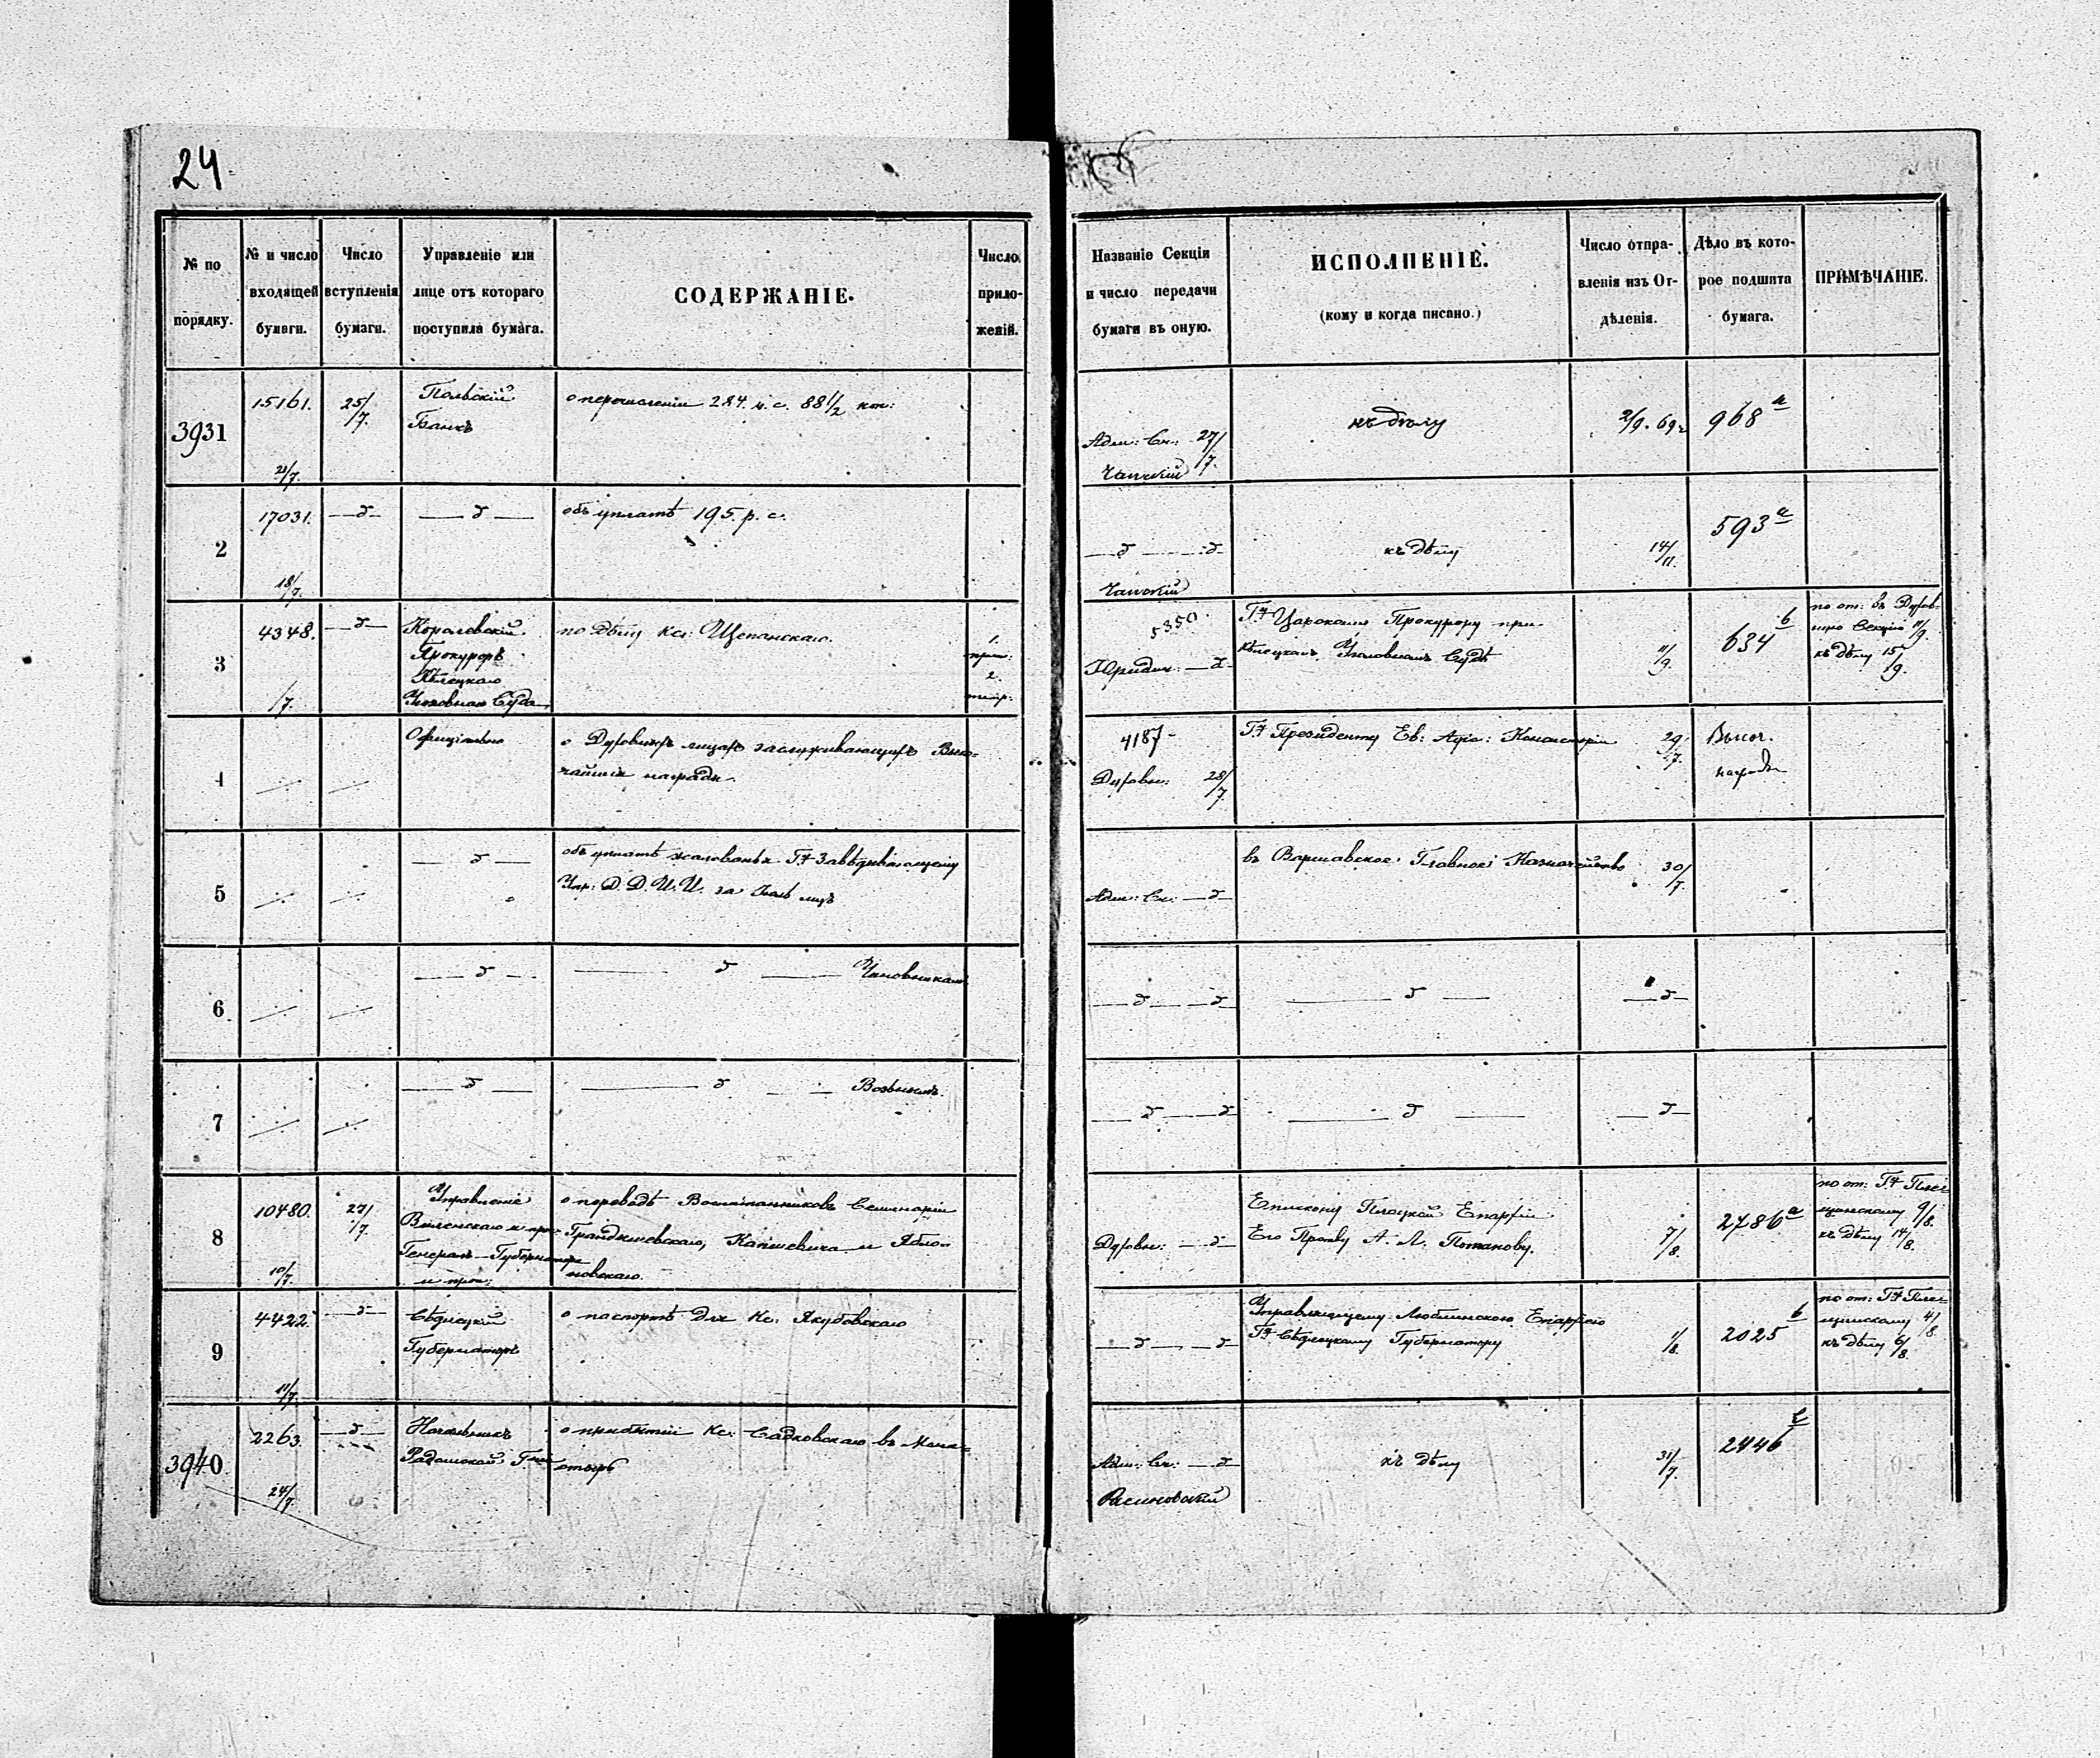 24
№ по порядку.
№ и число входящей бумаги.
Число вступленія бумаги.
Управленіе или лице отъ котораго поступила бумага.
СОДЕРЖАНІЕ.
Число приложеній.
Названіе Секціи и число передачи бумаги въ оную.
ИСПОЛНЕНІЕ.
(кому и когда писано.)
Число отправленія изъ Отдѣленія.
Дѣло въ которое подшита бумага.
ПРИМѢЧАНІЕ.
3931
15161.
21/7.
25/7.
Польскій
Банкъ
о перечисленіи 284. р. с. 88 1/2 коп:
Адм: Ск: 27/7.
къ дѣлу
2/9. 69 г
968 a
2
17031.
18/7.
— д —
— д —
объ уплатѣ 195. р. с.
— д — — д —
къ дѣлу
14/11.
593 a
3
4348.
/7.
— д —
Королевскій
Прокуроръ
Кѣлецкаго
Уголовнаго Суда
по дѣлу кс: Щепанскаго.
1.
2.
5350
Юридич: — д —
Г-ну Царскому Прокурору при
Кѣлецкомъ Уголовномъ Судѣ
11/9.
634 b
по от: въ Духовную Секцію 11/9.
къ дѣлу 15/9.
4
Офиціально
о Духовныхъ лицахъ заслуживающихъ Высочайшія награды.
4187
Духовн: 28/7.
Г-ну Президенту Ев: Аугс: Консисторіи
29/7.
Высоч.
награды
5
— д —
объ уплатѣ жалованья Г-ну Завѣдывающему
Упр: Д. Д. И. И. за Іюль мцъ
Адм: Ск: — д —
въ Варшавское Главное Казначейство
30/7.
6
— д —
— д — Чиновникамъ
— д — — д —
— д —
— д —
7
— д —
— д — Вознымъ.
— д — — д —
— д —
— д —
8
10480.
10/7.
27/7.
Управленіе
Виленскаго и проч:
Генералъ-Губернатора
и проч:
о переводѣ Воспитанниковъ Семинаріи
Духовн: — д —
Епископу Плоцкой Епархіи
Его Прев-ву А. Л. Потапову.
7/8.
2786 a
къ дѣлу 14/8.
9
4422.
11/7.
— д —
Сѣдлецкій
Губернаторъ
о паспортѣ для Кс: Якубовскаго
— д — — д —
Управляющему Люблинскою Епархіею
Г-ну Сѣдлецкому Губернатору
1/8.
2025 b
къ дѣлу 6/8.
3940
2263.
24/7.
— д —
Начальникъ
Радомской Губ
о прибытіи Кс: Садковскаго въ Монастырь
Адм: Ск: — д —
къ дѣлу
31/7.
2446